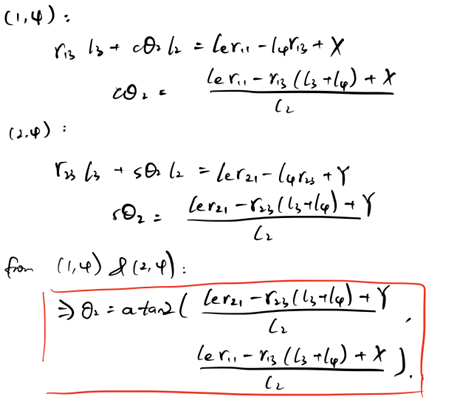 (1,4) :
r₁₃ l₃ + cθ₂ l₂ = l_e r₁₁ - l₄ r₁₃ + X
cθ₂ = (l_e r₁₁ - r₁₃ (l₃+l₄) + X) / l₂
(2,4) :
r₂₃ l₃ + sθ₂ l₂ = l_e r₂₁ - l₄ r₂₃ + Y
sθ₂ = (l_e r₂₁ - r₂₃ (l₃+l₄) + Y) / l₂
from (1,4) & (2,4) :
⇒ θ₂ = atan2 ( (l_e r₂₁ - r₂₃ (l₃+l₄) + Y) / l₂ ,
(l_e r₁₁ - r₁₃ (l₃+l₄) + X) / l₂ ) .